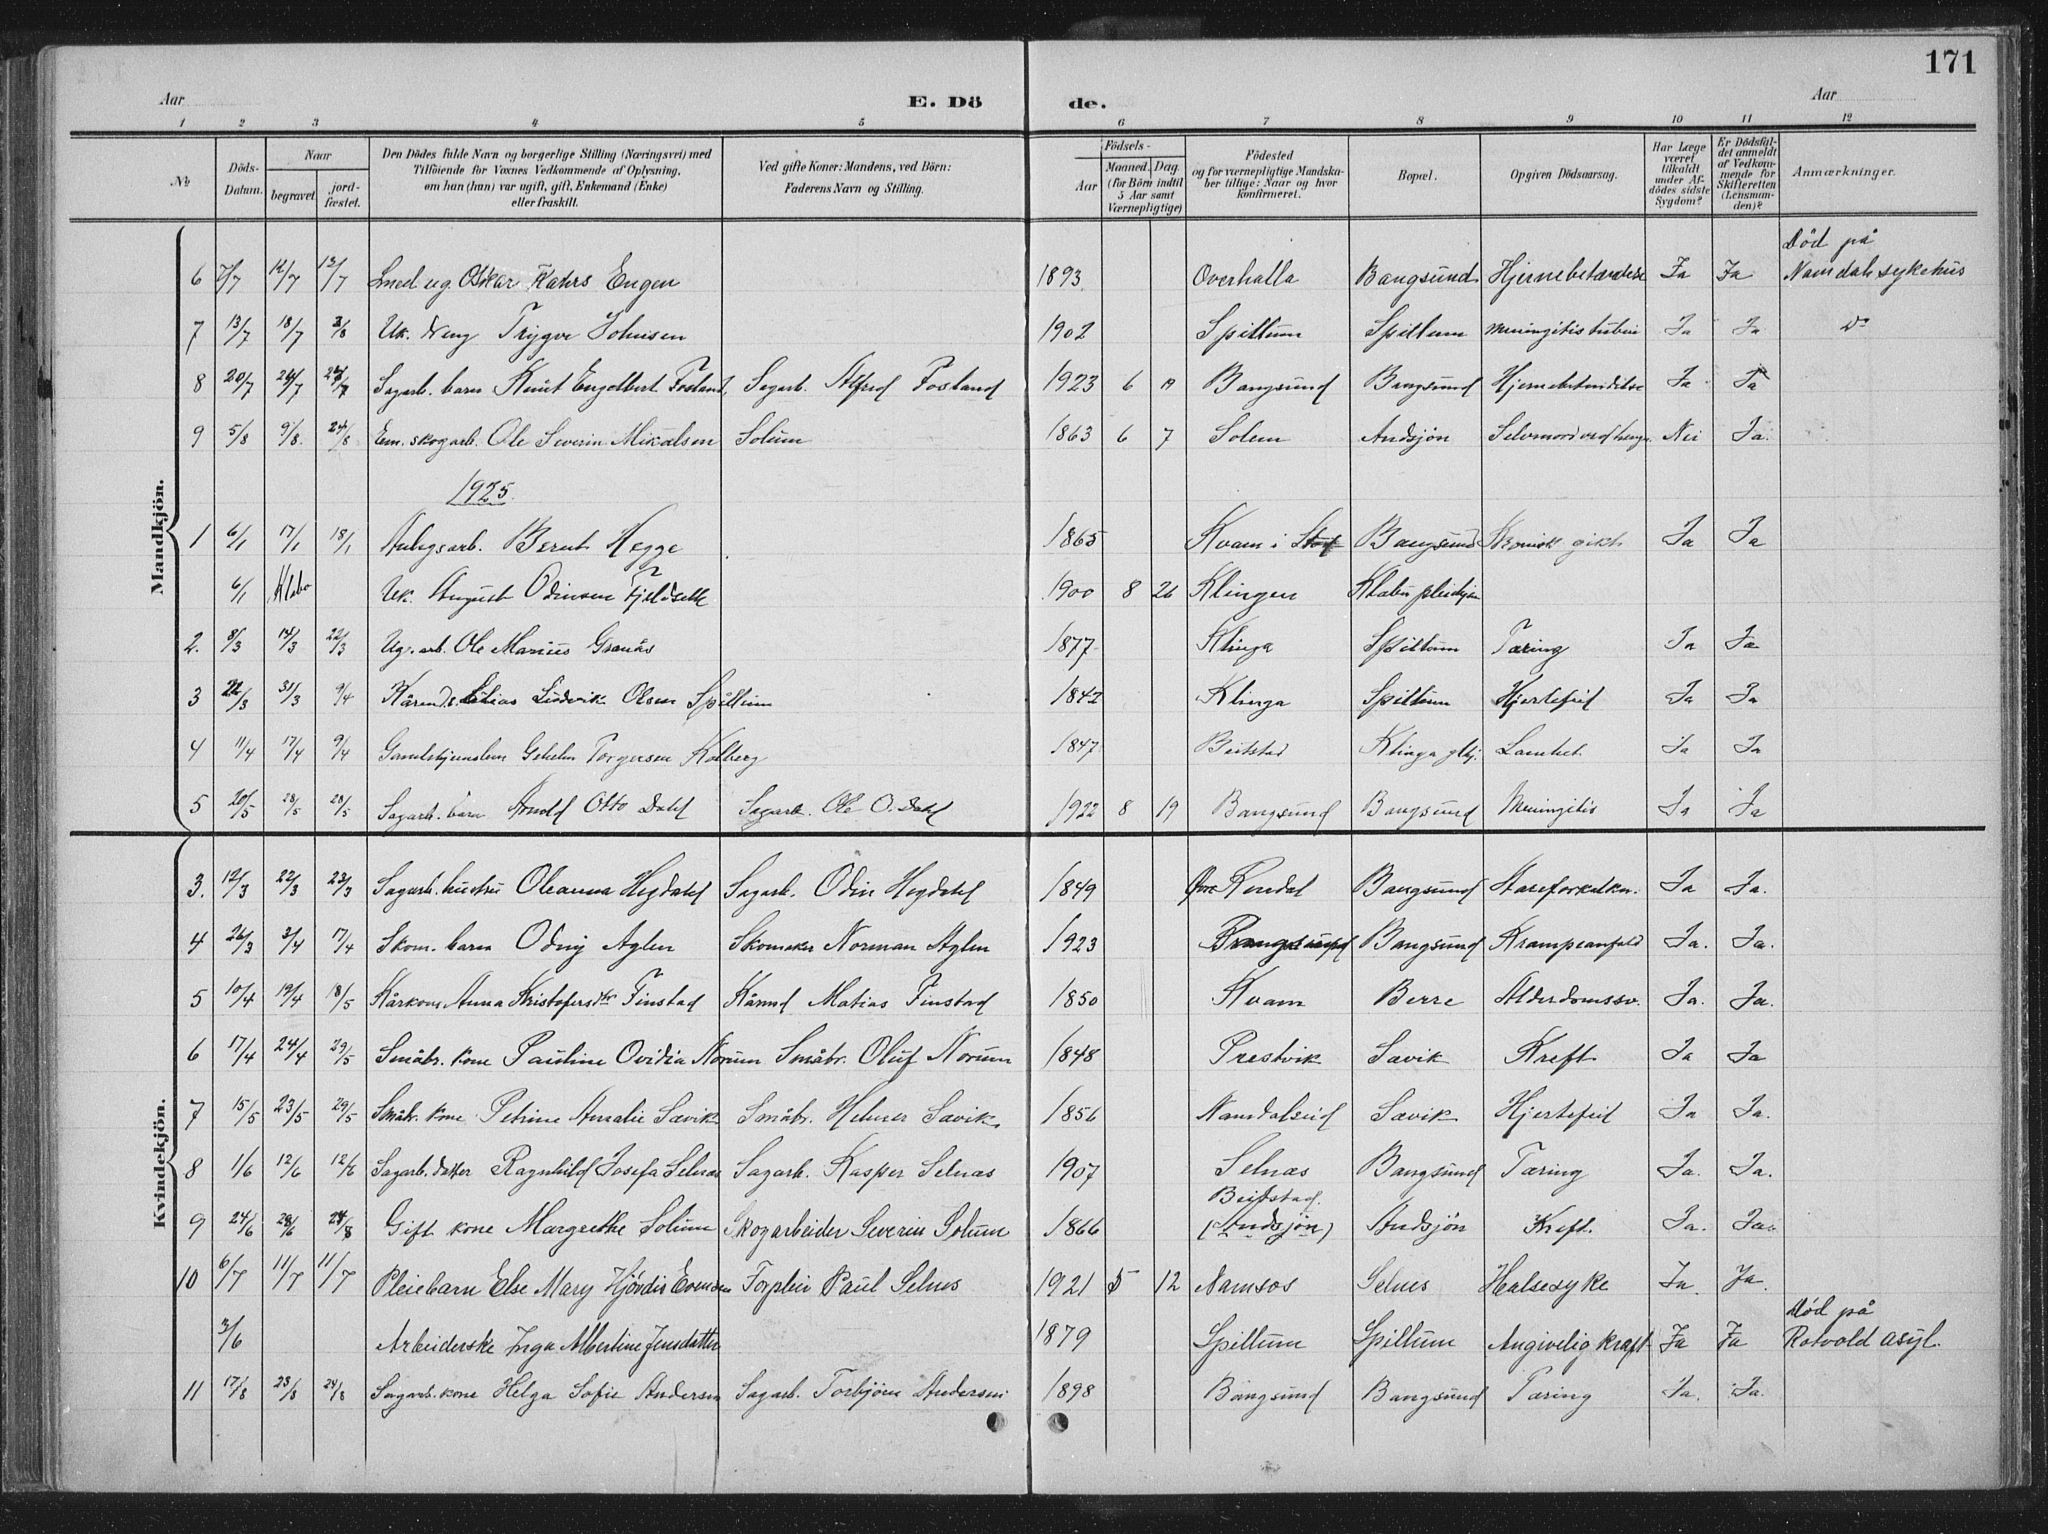 171
Aar E. Dö de. Aar
1 2 3 4 5 6 7 8 9 10 11 12
No.
Döds-Datum.
Naar
begravet.
jord-fæstet.
Den Dödes fulde Navn og borgerlige Stilling (Næringsvei) med
Tilföiende for Voxnes Vedkommende af Oplysning,
om han (hun) var ugift, gift, Enkemand (Enke)
eller fraskilt.
Ved gifte Koner: Mandens, ved Börn:
Faderens Navn og Stilling.
Födsels-
Aar
Maaned. Dag.
(for Börn indtil
5 Aar samt
Værnepligtige)
Födested
og for værnepligtige Mandska-
ber tillige: Naar og hvor
konfirmeret.
Bopæl.
Opgiven Dödsaarsag.
Har Læge
været
tilkaldt
under Af-
dödes sidste
Sygdom?
Er Dödsfal-
det anmeldt
af Vedkom-
mende for
Skifteretten
(Lensman-
den)?
Anmærkninger.
Mandkjön.
6 7/7 12/7 13/7 Smed ug. Oskar Kahrs Engen 1893 Overhalla Bangsund Hjernebetændelse Ja Ja Död på Namdal sykehus
7 13/7 18/7 3/8 Uk. Trygve Johnsen 1902 Spillum Spillum Meningitis tuber Ja Ja Do
8 20/7 24/7 Sagarb. barn Knut Engelbert Fosland, Sagarb. Alfred Fosland 1923 6 Bangsund Bangsund Ja Ja
9 5/8 9/8 24/8 Em. skogarb. Ole Severin Mikalsen Solum 1863 6 7 Solem Andsjön Selvmord ved Nei Ja.
1925.
1 6/1 17/1 18/1 Bernt Hegge 1865 Kvam i Bangsund Kronisk gikt Ja Ja
6/1 Klæbo Uk. August Odinsen Fjeldseth 1900 8 26 Klingen Klæbu pleiehjem
2. 8/3 14/3 22/3 Ug. arb. Ole Marius Granås 1877 Klinga Spillum Tæring Ja Ja
3 22/3 31/3 9/4 Kårmd. Elias Ludvik Olsen Spillum 1842 Klinga Spillum Hjertefeil Ja Ja
4 11/4 17/4 9/4 Gamlehjemslem Torgersen Kolberg 1847 Beitstad Klinga glhj. Lamhet Ja Ja
5 20/5 28/5 28/5 Sagarb. barn Arnold Otto Dahl Sagarb. Ole O. Dahl 1922 8 19 Bangsund Bangsund Meningitis Ja Ja
Kvindekjön.
3. 12/3 22/3 23/3 Sagarb. hustru Oleanna Hegdahl Sagarb. Odin Hegdahl 1849 Rendal Bangsund Ja Ja.
4 26/3 3/4 17/4 Skom. barn Odny Aglen Skomaker Norman Aglen 1923 Bangsund Bangsund Krampeanfald Ja. Ja.
5 10/4 19/4 18/5 Kårkone Anna Kristofersdtr Finstad Kårmd Matias Finstad 1850 Kvam Berre Alderdomssv. Ja. Ja.
6 17/4 24/4 29/5 Småbr. kone Pauline Ovidia Norum Småbr. Oluf Norum 1848 Prestvik Savik Kreft Ja Ja
7 15/5 23/5 29/5 Småbr. kone Petrine Amalie Sævik Småbr. Helmer Savik 1856 Namdalseid Sævik Hjertefeil Ja Ja.
8 1/6 12/6 12/6 Sagarb. datter Ragnhild Josefa Selnæs Sagarb. Kasper Selnæs 1907 Selnæs Bangsund Tæring Ja. Ja.
9 24/6 28/6 24/8 Gift kone Margrethe Solum Skogarbeider Severin Solum 1866 Beitstad. (Andsjön) Andsjön Kreft. Ja. Ja.
10 6/7 11/7 11/7 Pleiebarn Else Mary Hjördis Evensen Forpleier Paul Selnes 1921 5 12 Namsos Selnes Halsesyke Ja. Ja.
3/6 Arbeiderske Inga Albertine Jensdatter 1879 Spillum Spillum Angivelig kraft Ja Ja Död på Rotvold asyl.
11 17/8 23/8 24/8 Sagarb. kone Helga Sofie Andersen Sagarb. Torbjörn Andersen 1898 Bangsund Bangsund Tæring Ja. Ja.